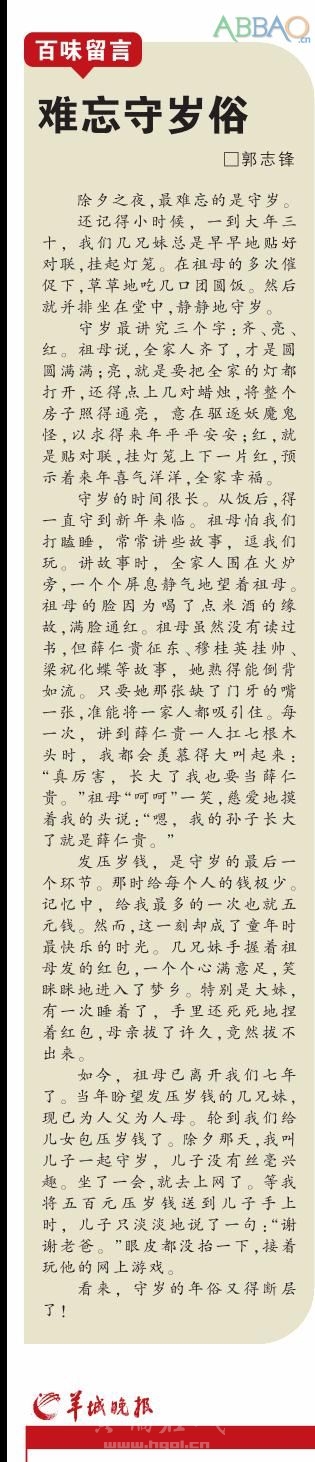 ABBAO.cn
百味留言
难忘守岁俗
□郭志锋
除夕之夜,最难忘的是守岁。
还记得小时候，一到大年三
十，我们几兄妹总是早早地贴好
对联,挂起灯笼。在祖母的多次催
促下,草草地吃几口团圆饭。然后
就并排坐在堂中,静静地守岁。
守岁最讲究三个字:齐、亮、
红。祖母说,全家人齐了,才是圆
圆满满;亮,就是要把全家的灯都
打开,还得点上几对蜡烛,将整个
房子照得通亮，意在驱逐妖魔鬼
怪,以求得来年平平安安;红,就
是贴对联,挂灯笼上下一片红,预
示着来年喜气洋洋,全家幸福。
守岁的时间很长。从饭后,得
一直守到新年来临。祖母怕我们
打瞌睡，常常讲些故事，逗我们
玩。讲故事时，全家人围在火炉
旁,一个个屏息静气地望着祖母。
祖母的脸因为喝了点米酒的缘
故,满脸通红。祖母虽然没有读过
书,但薛仁贵征东、穆桂英挂帅、
梁祝化蝶等故事，她熟得能倒背
如流。只要她那张缺了门牙的嘴
一张,准能将一家人都吸引住。每
一次，讲到薛仁贵一人扛七根木
头时，我都会羡慕得大叫起来:
“真厉害，长大了我也要当薛仁
贵。”祖母“呵呵”一笑,慈爱地摸
着我的头说:“嗯，我的孙子长大
了就是薛仁贵。”
发压岁钱，是守岁的最后一
个环节。那时给每个人的钱极少。
记忆中，给我最多的一次也就五
元钱。然而,这一刻却成了童年时
最快乐的时光。几兄妹手握着祖
母发的红包,一个个心满意足,笑
眯眯地进入了梦乡。特别是大妹,
有一次睡着了，手里还死死地捏
着红包,母亲拔了许久,竟然拔不
出来。
如今，祖母已离开我们七年
了。当年盼望发压岁钱的几兄妹,
现已为人父为人母。轮到我们给
儿女包压岁钱了。除夕那天,我叫
儿子一起守岁，儿子没有丝毫兴
趣。坐了一会,就去上网了。等我
将五百元压岁钱送到儿子手上
时，儿子只淡淡地说了一句:“谢
谢老爸。”眼皮都没抬一下,接着
玩他的网上游戏。
看来，守岁的年俗又得断层
了!
羊城晚报
www.hgol.cn